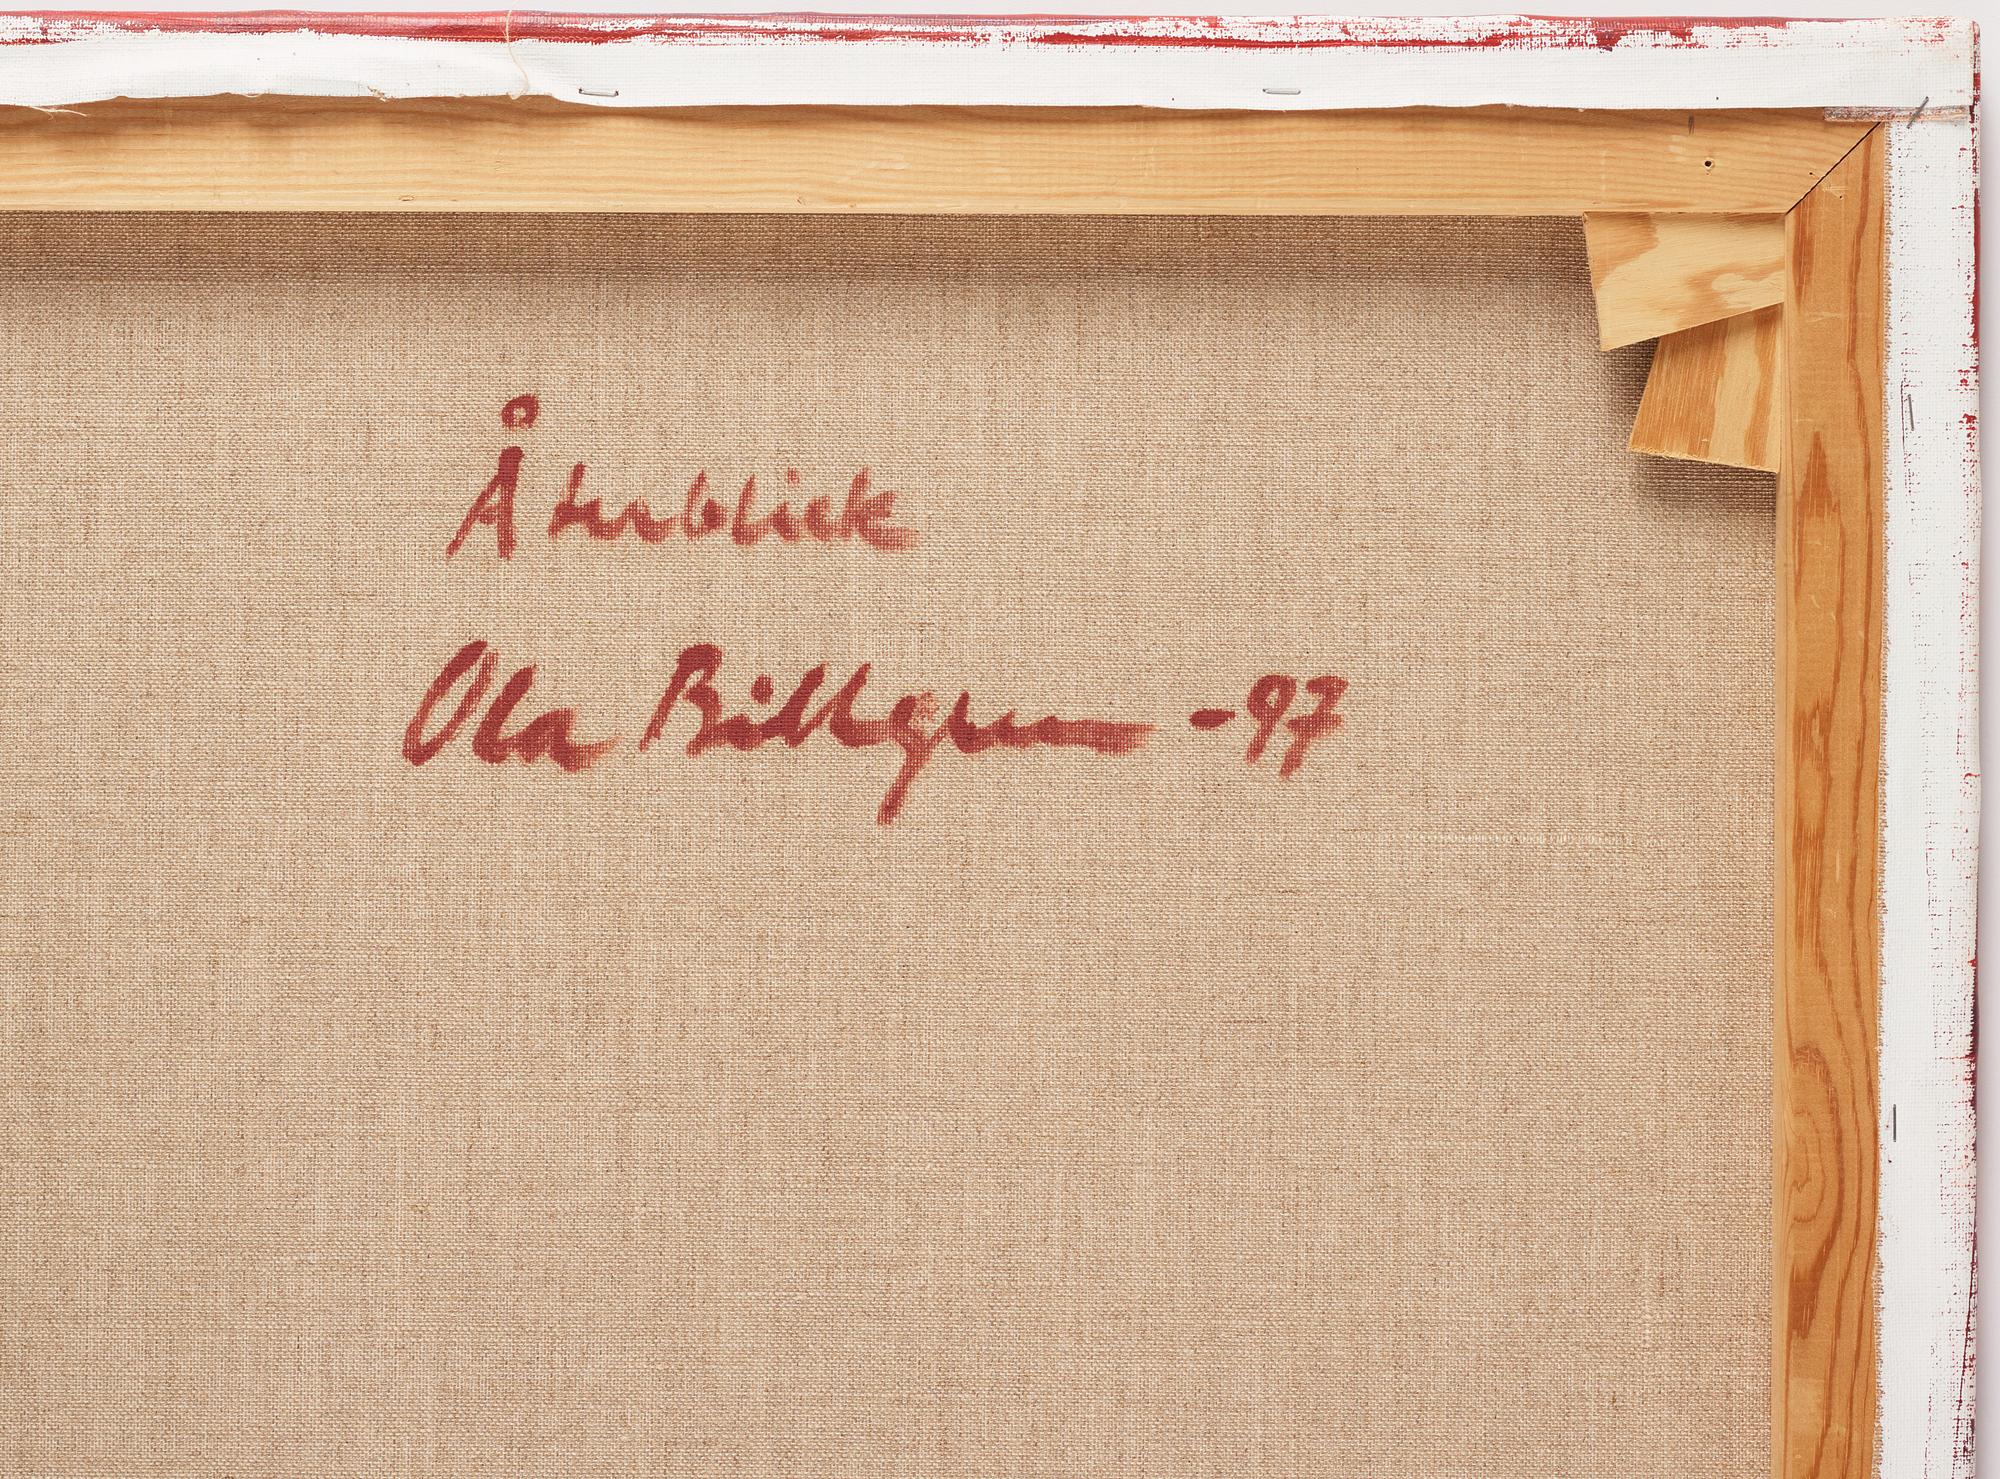 Återblick
Ola Billgren -97